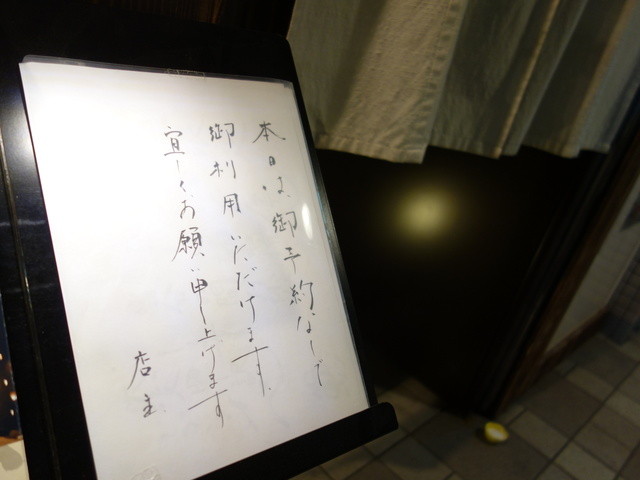 本日は、御予約なしで
御利用いただけます。
宜しくお願い申し上げます
店主